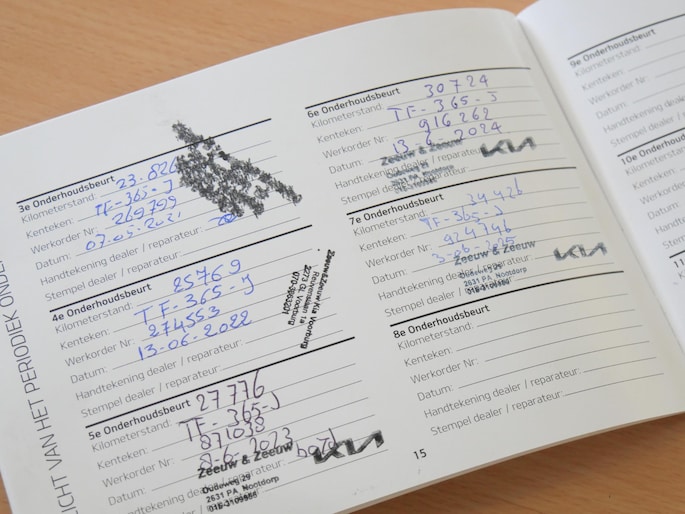 ICHT VAN HET PERIODIEK ONDE
3e Onderhoudsbeurt
Kilometerstand: 23.826
Kenteken: TF-365-J
Werkorder Nr: 269799
Datum: 07.05.2021
Handtekening dealer / reparateur:
Stempel dealer / reparateur:
4e Onderhoudsbeurt
Kilometerstand: 25769
Kenteken: TF-365-J
Werkorder Nr: 274553
Datum: 13-06-2022
Handtekening dealer / reparateur:
Stempel dealer / reparateur:
Zeeuw & Zeeuw Kia Voorburg
2273 Voorburg
5e Onderhoudsbeurt
Kilometerstand: 27776
Kenteken: TF-365-J
Werkorder Nr: 871038
Datum: 6-2023
Handtekening dealer / reparateur:
Stempel dealer / reparateur:
Zeeuw & Zeeuw
Oudeweg 29
2631 PA Nootdorp
KIA
6e Onderhoudsbeurt
Kilometerstand: 30724
Kenteken: TF-365-J
Werkorder Nr: 916262
Datum: 13-6-2024
Handtekening dealer / reparateur:
Stempel dealer / reparateur:
Zeeuw & Zeeuw
Oudeweg 29
2631 PA Nootdorp
KIA
7e Onderhoudsbeurt
Kilometerstand: 34426
Kenteken: TF-365-J
Werkorder Nr: 924746
Datum: 3-06-2025
Handtekening dealer / reparateur:
Stempel dealer / reparateur:
Zeeuw & Zeeuw
Oudeweg 29
2631 PA Nootdorp
KIA
8e Onderhoudsbeurt
Kilometerstand:
Kenteken:
Werkorder Nr:
Datum:
Handtekening dealer / reparateur:
Stempel dealer / reparateur:
15
9e Onderhoudsbeurt
Kilometerstand:
Kenteken:
Werkorder Nr:
Datum:
Handtekening dealer
Stempel dealer / re
10e Onderhoudsbeu
Kilometerstand:
Kenteken:
Werkorder Nr:
Datum:
Handtekening
Stempel dea